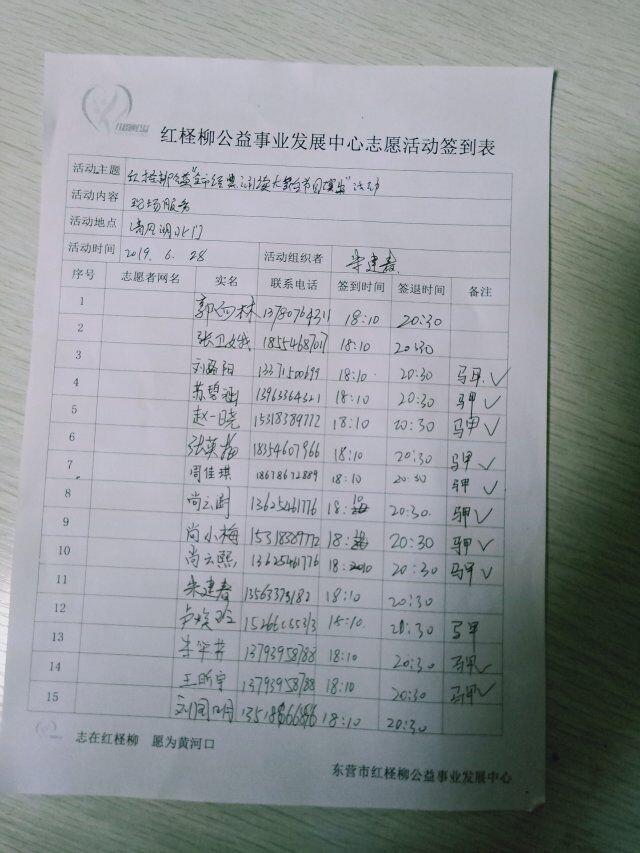 红柽柳公益事业发展中心志愿活动签到表
活动主题
活动内容 现场服务
活动地点 清风湖北门
活动时间 2019. 6. 28 活动组织者 朱建春
序号 志愿者网名 实名 联系电话 签到时间 签退时间 备注
1 郭向林 13780764311 18:10 20:30
2 张卫娥 18554687017 18:10 20:30
3 13371500699 18:10 20:30 马甲 ✓
4 苏碧涵 13963364321 18:10 20:30 马甲 ✓
5 赵一晓 15318389772 18:10 20:30 马甲 ✓
6 张英梅 18354607966 18:10 20:30 马甲 ✓
7 周佳琪 18678672889 18:10 20:30 马甲 ✓
8 13625461776 18: 20:30 马甲 ✓
9 尚小梅 15318389772 18: 20:30 马甲 ✓
10 尚云熙 13625461776 18: 20:30 马甲 ✓
11 朱建春 13563373182 18:10 20:30
12 15:10 20:30 马甲
13 13793958188 18:10 20:30 马甲 ✓
14 王昕宇 13793958188 18:10 20:30 马甲 ✓
15 18:10 20:30
志在红柽柳 愿为黄河口
东营市红柽柳公益事业发展中心